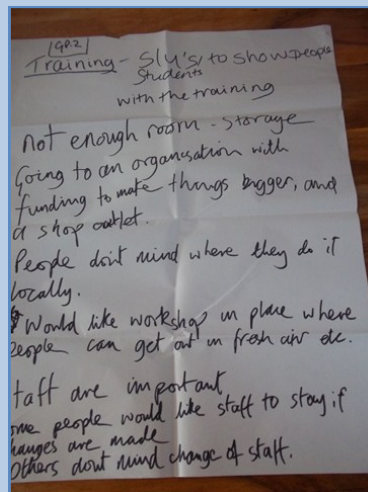 GP.2
Training - Slu's to show people
Students
with the training
not enough room - storage
Going to an organisation with
funding to make things bigger, and
a shop outlet.
People don't mind where they do it
locally.
Would like workshop in place where
people can get out in fresh air etc.
taff are important
ome people would like staff to stay if
hanges are made
Others dont mind change of staff.